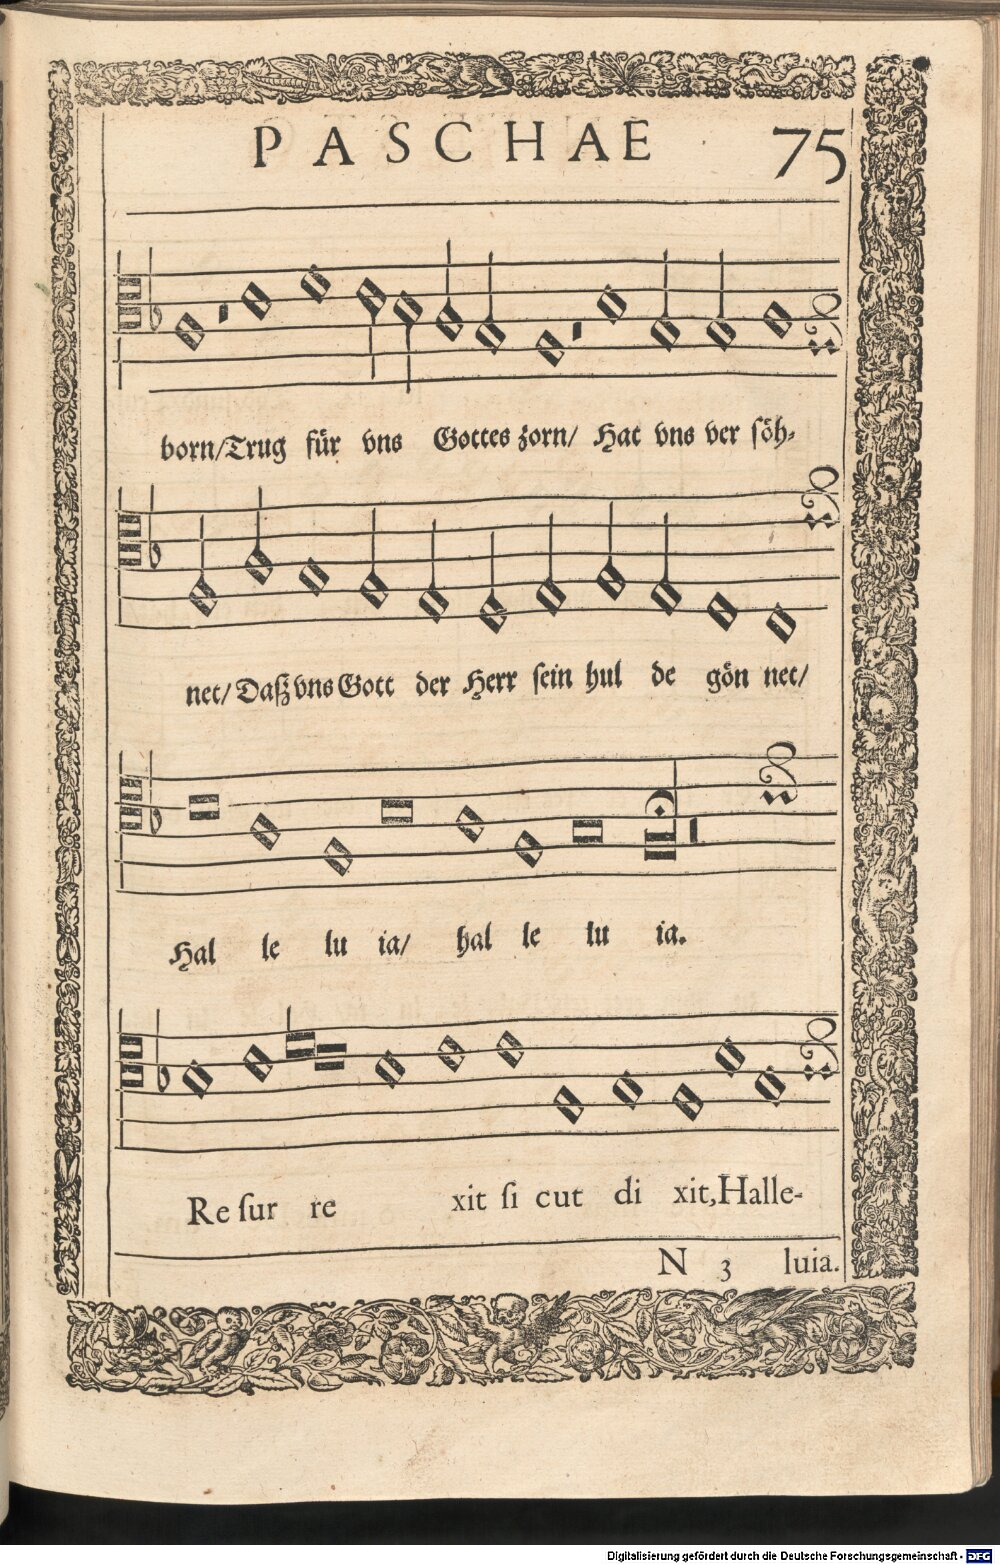 PASCHAE 75
born/Trug für vns Gottes zorn/ Hat vns ver ſöh-
net/ Daß vns Gott der Herr ſein hul de gön net/
Hal le lu ia/ hal le lu ia.
Re ſur re xit ſi cut di xit, Halle-
N 3 luia.
Digitalisierung gefördert durch die Deutsche Forschungsgemeinschaft - DFG